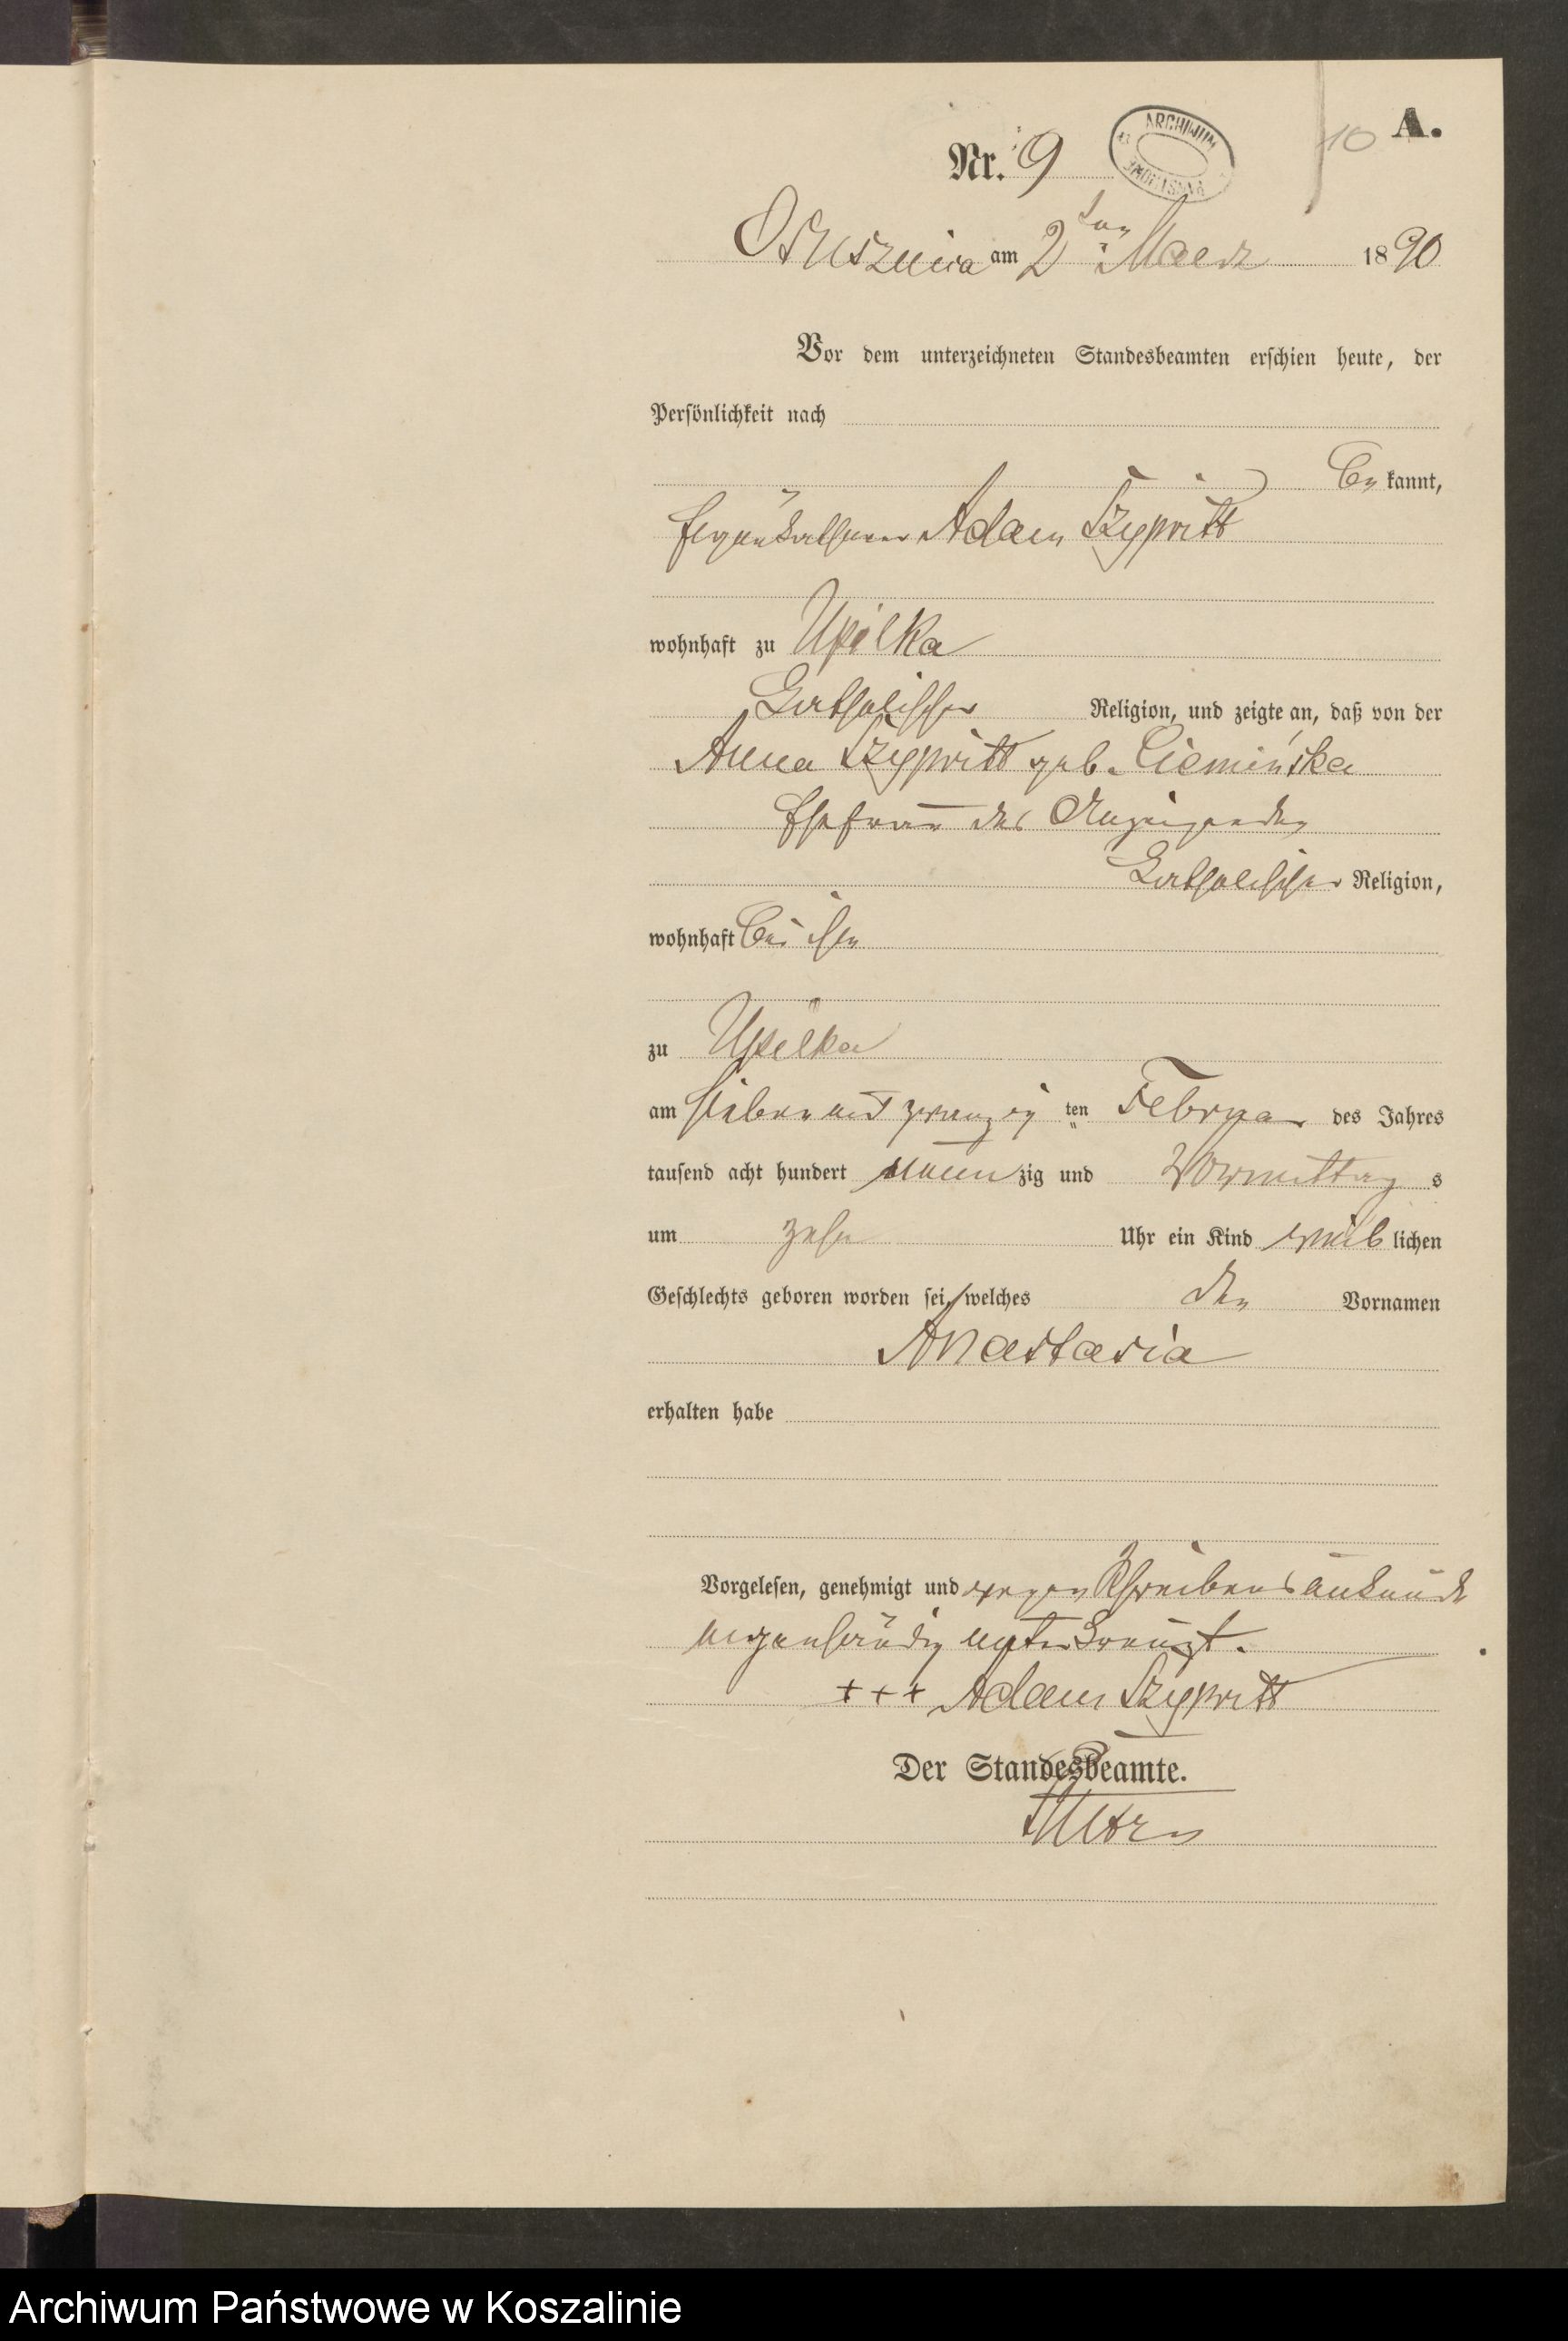 A.
10
Nr. 9
ARCHIWUM
Osusznica am 2ten Maerz 1890
Vor dem unterzeichneten Standesbeamten erschien heute, der
Persönlichkeit nach
be kannt,
Eigenkäthner Adam Szypritt
wohnhaft zu Upilka
Katholischer Religion, und zeigte an, daß von der
Anna Szypritt geb. Ciemińska
Ehefrau des Anzeigenden
Katholischer Religion,
wohnhaft bei ihm
zu Upilka
am sieben und zwanzig ten Februar des Jahres
tausend acht hundert neun zig und Vormittag s
um zehn Uhr ein Kind weib lichen
Geschlechts geboren worden sei, welches den Vornamen
Anastasia
erhalten habe
Vorgelesen, genehmigt und wegen Schreibensunkunde
eigenhändig unterkreuzt.
+++ Adam Szypritt
Der Standesbeamte.
Archiwum Państwowe w Koszalinie